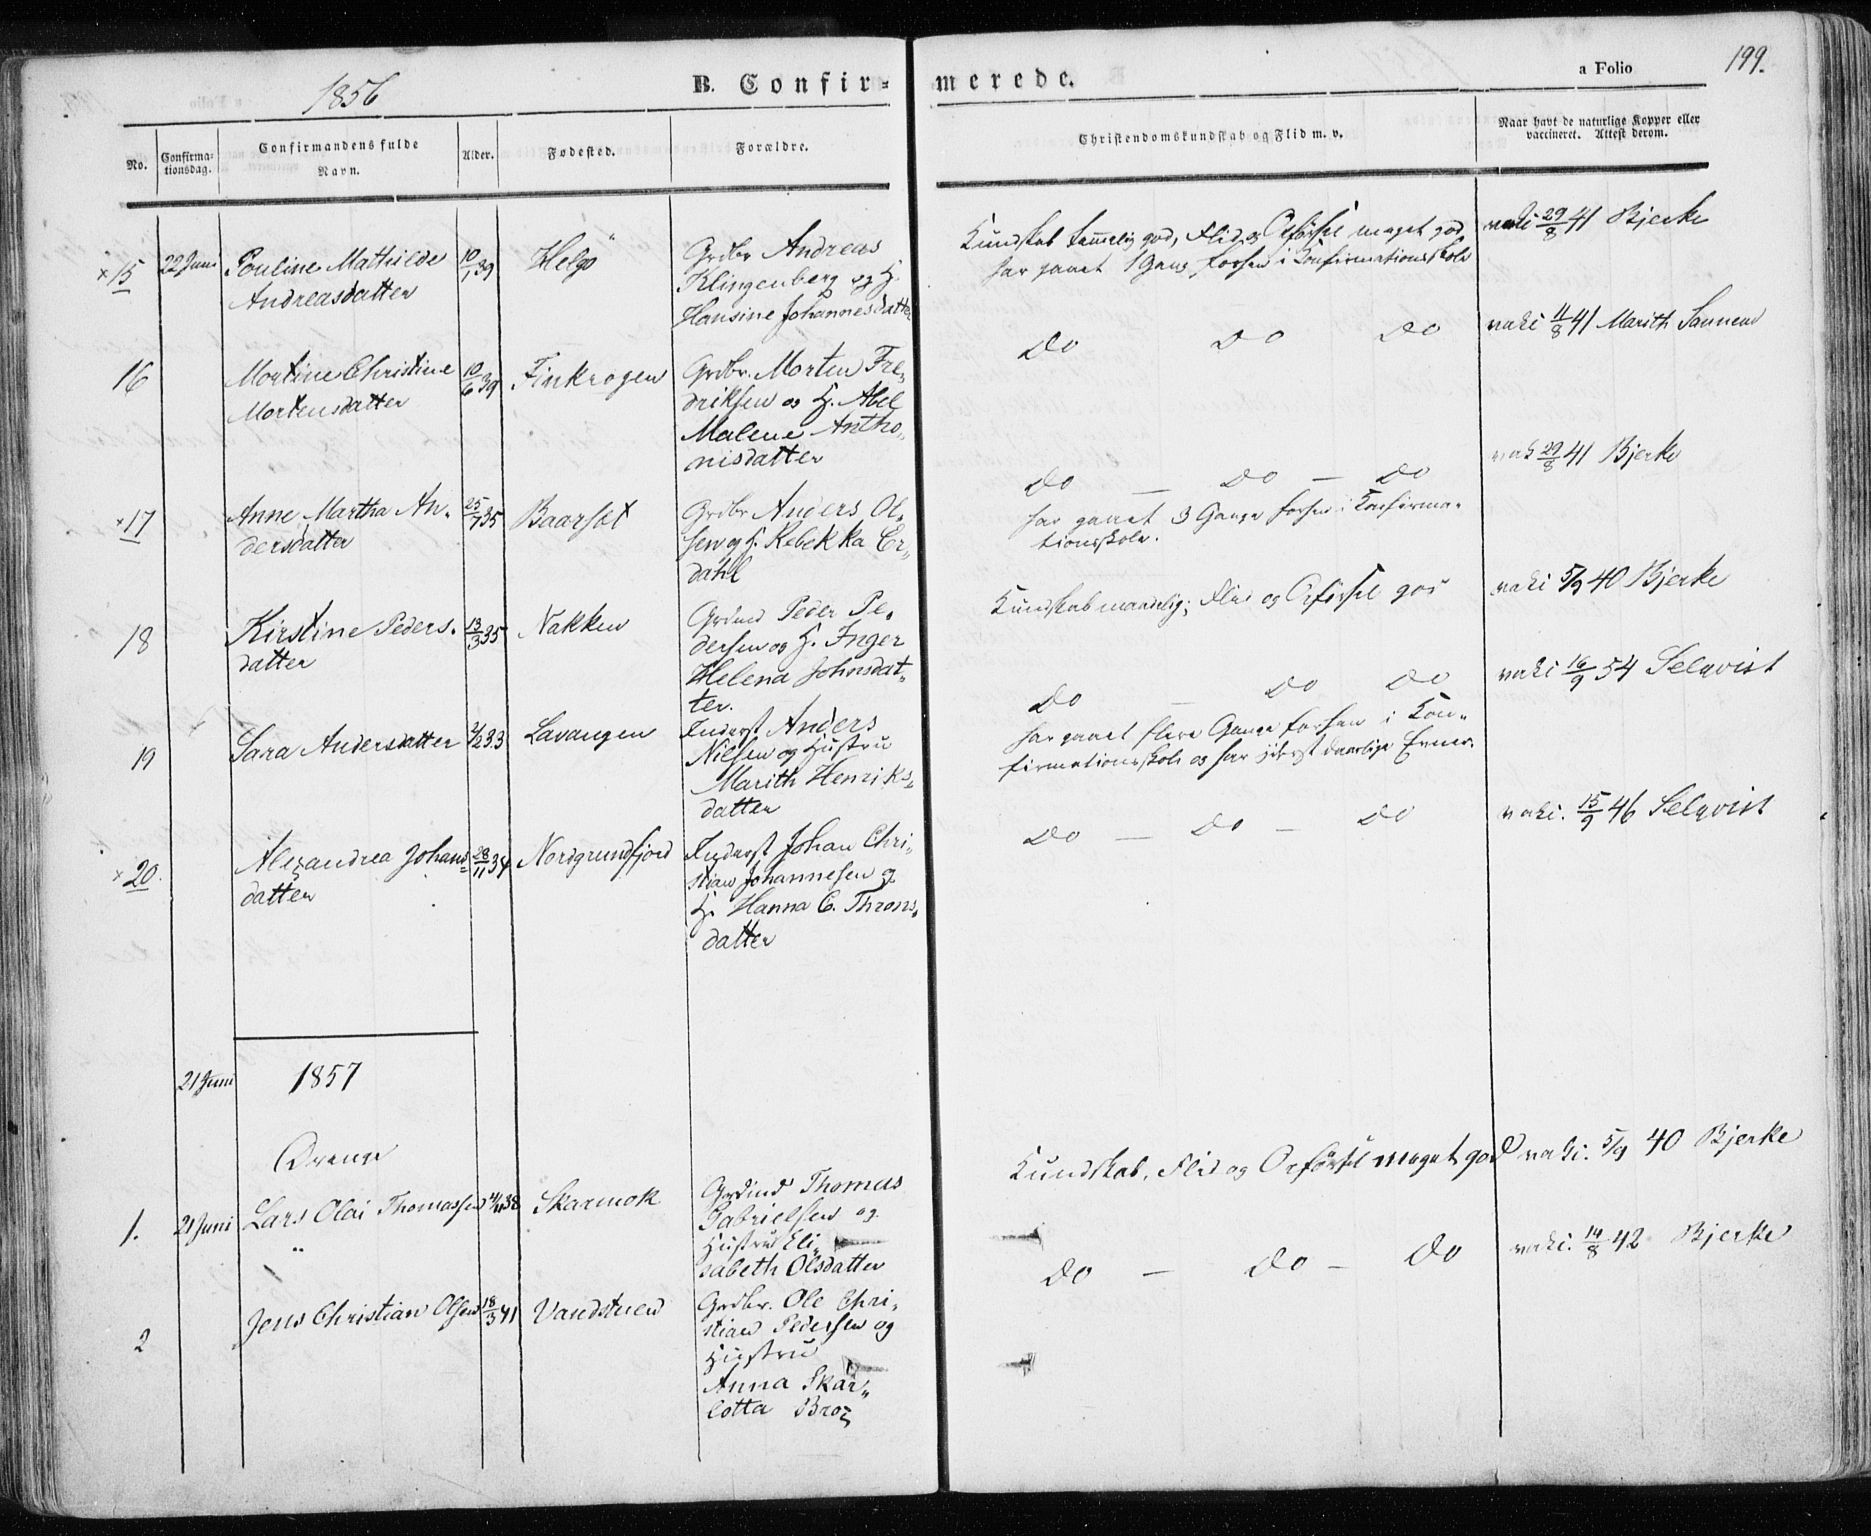 1856
B. Confir-
merede.
a Folio 199.
No.
Confirma-
tionsdag.
Confirmandens fulde
Navn.
Alder.
Fødested.
Forældre.
Christendomskundskab og Flid m. v.
Naar havt de naturlige Kopper eller
vaccineret. Attest derom.
× 15 22 Juni Pouline Mathilde
Andreasdatter
10/1 39
Helgö
Grdbr Andreas
Klingenberg og H.
Hansine Johannesdatter
Kundskab temmelig god, Flid og Opførsel meget god,
har gaaet 1 Gang forhen i Konfirmationsskole
vaki 29/8 41 Bjerke
16
Mortine Christine
Mortensdatter
10/6 39
Finkrogen
Grdbr. Morten Fre-
driksen og H. Abel
Malene Antho-
nisdatter
Do Do Do
vaki 11/8 41 Marith Sannend
× 17
Anne Martha An-
dersdatter
25/7 35
Baarset
Grdbr Anders Ol-
sen og H. Rebekka Er-
dahl
Do — Do — Do
har gaaet 3 Gange forhen i Konfirma-
tionsskole.
vak 29/8 41 Bjerke
18
Kirstine Peders-
datter
13/3 35
Nakken
Grdmd Peder Pe-
dersen og H. Inger
Helena Johnsdat-
ter.
Kundskab maadelig; Flid og Opførsel god
vaki 5/9 40 Bjerke
19
Sara Andersdatter
33
Lavangen
Inderst Anders
Nielsen og Hustru
Marith Henriks-
datter
Do — Do Do
har gaaet flere Gange forhen i Kon-
firmationsskole og har yderst daarlige Evner.
vaki 16/9 54 Selqvist
× 20.
Alexandrea Johans-
datter
28/11 34
Nordgrundfjord
Inderst Johan Chri-
stian Johannesen og
H. Hanna C. Throns-
datter
Do — Do — Do
vaki. 15/9 46 Selqvist
21 Juni 1857
Drenge
1. 21 Juni Lars Olai Thomassen
38
Skarmok
Grdmd Thomas
Gabrielsen og
Hustru Eli-
sabeth Olsdatter
Kundskab, Flid og Opførsel meget god
vaki. 5/9 40 Bjerke
2
Jens Christian Olsen
18/3 41
Vandstuen
Grdbr. Ole Chri-
stian Pedersen og
Hustru
Anna Skar-
lotta Brox
Do — Do — Do
vaki. 14/8 42 Bjerke